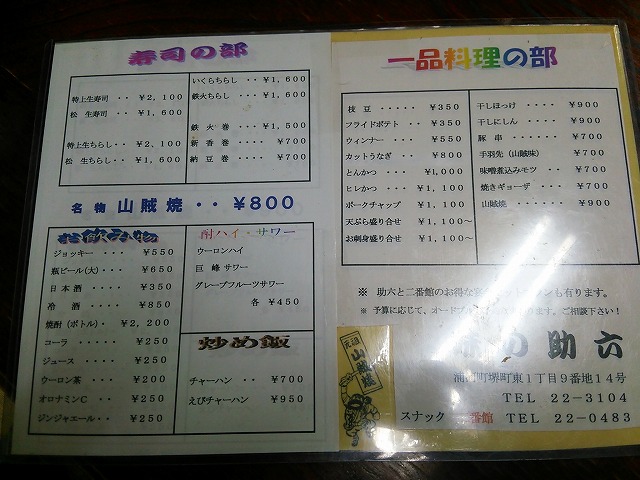 寿司の部
特上生寿司 ・・ ￥2,100
松 生寿司 ・・ ￥1,600
特上生ちらし・・ ￥2,100
松 生ちらし・・ ￥1,600
いくらちらし ・・ ￥1,600
鉄火ちらし ・・ ￥1,600
鉄 火 巻 ・・ ￥1,500
新 香 巻 ・・・ ￥700
納 豆 巻 ・・・ ￥700
名 物 山賊焼・・￥800
お飲み物
ジョッキー ・・・ ￥550
瓶ビール(大)・・・ ￥650
日 本 酒 ・・・・ ￥350
冷 酒 ・・・・ ￥850
焼酎(ボトル)・・ ￥2,200
コーラ ・・・・・ ￥250
ジュース ・・・・ ￥250
ウーロン茶 ・・・ ￥200
オロナミンC ・・ ￥250
ジンジャエール・・ ￥250
酎ハイ・サワー
ウーロンハイ
巨 峰 サワー
グレープフルーツサワー
各 ￥450
炒め飯
チャーハン ・・ ￥700
えびチャーハン ￥950
一品料理の部
枝 豆 ・・・・・ ￥350
フライドポテト ・・ ￥350
ウィンナー ・・・ ￥550
カットうなぎ ・・ ￥800
とんかつ ・・・ ￥1,000
ヒレかつ ・・・ ￥1,100
ポークチャップ ￥1,100
天ぷら盛り合せ ￥1,100～
お刺身盛り合せ ￥1,100～
干しほっけ ・・・・ ￥900
干しにしん ・・・・ ￥900
豚 串 ・・・・・ ￥700
手羽先(山賊味) ￥700
味噌煮込みモツ ・・ ￥700
焼きギョーザ ・・・ ￥700
山賊焼 ・・・・・・ ￥900
※ 助六と二番館のお得な
ンも有ります。
※ 予算に応じて、オード
ます。ご相談下さい！
の 助 六
元祖
山賊焼
町堺町東1丁目9番地14号
TEL 22-3104
スナック 二番館 TEL 22-0483